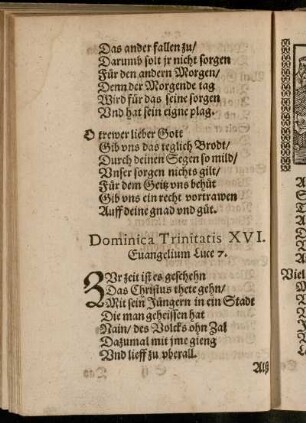 Das ander fallen zu/
Darumb solt jr nicht sorgen
Für den andern Morgen/
Denn der Morgende tag
Wird für das seine sorgen
Vnd hat sein eigne plag.
O trewer lieber Gott
Gib vns das teglich Brodt/
Durch deinen Segen so mild/
Vnser sorgen nichts gilt/
Für dem Geitz vns behüt
Gib vns ein recht vortrawen
Auff deine gnad vnd güt.
Dominica Trinitatis XVI.
Euangelium Luce 7.
ZVr zeit ist es geschehn
Das Christus thete gehn/
Mit sein Jüngern in ein Stadt
Die man geheissen hat
Nain/ des Volcks ohn Zal
Dazumal mit jme gieng
Vnd lieff zu vberall.
Als